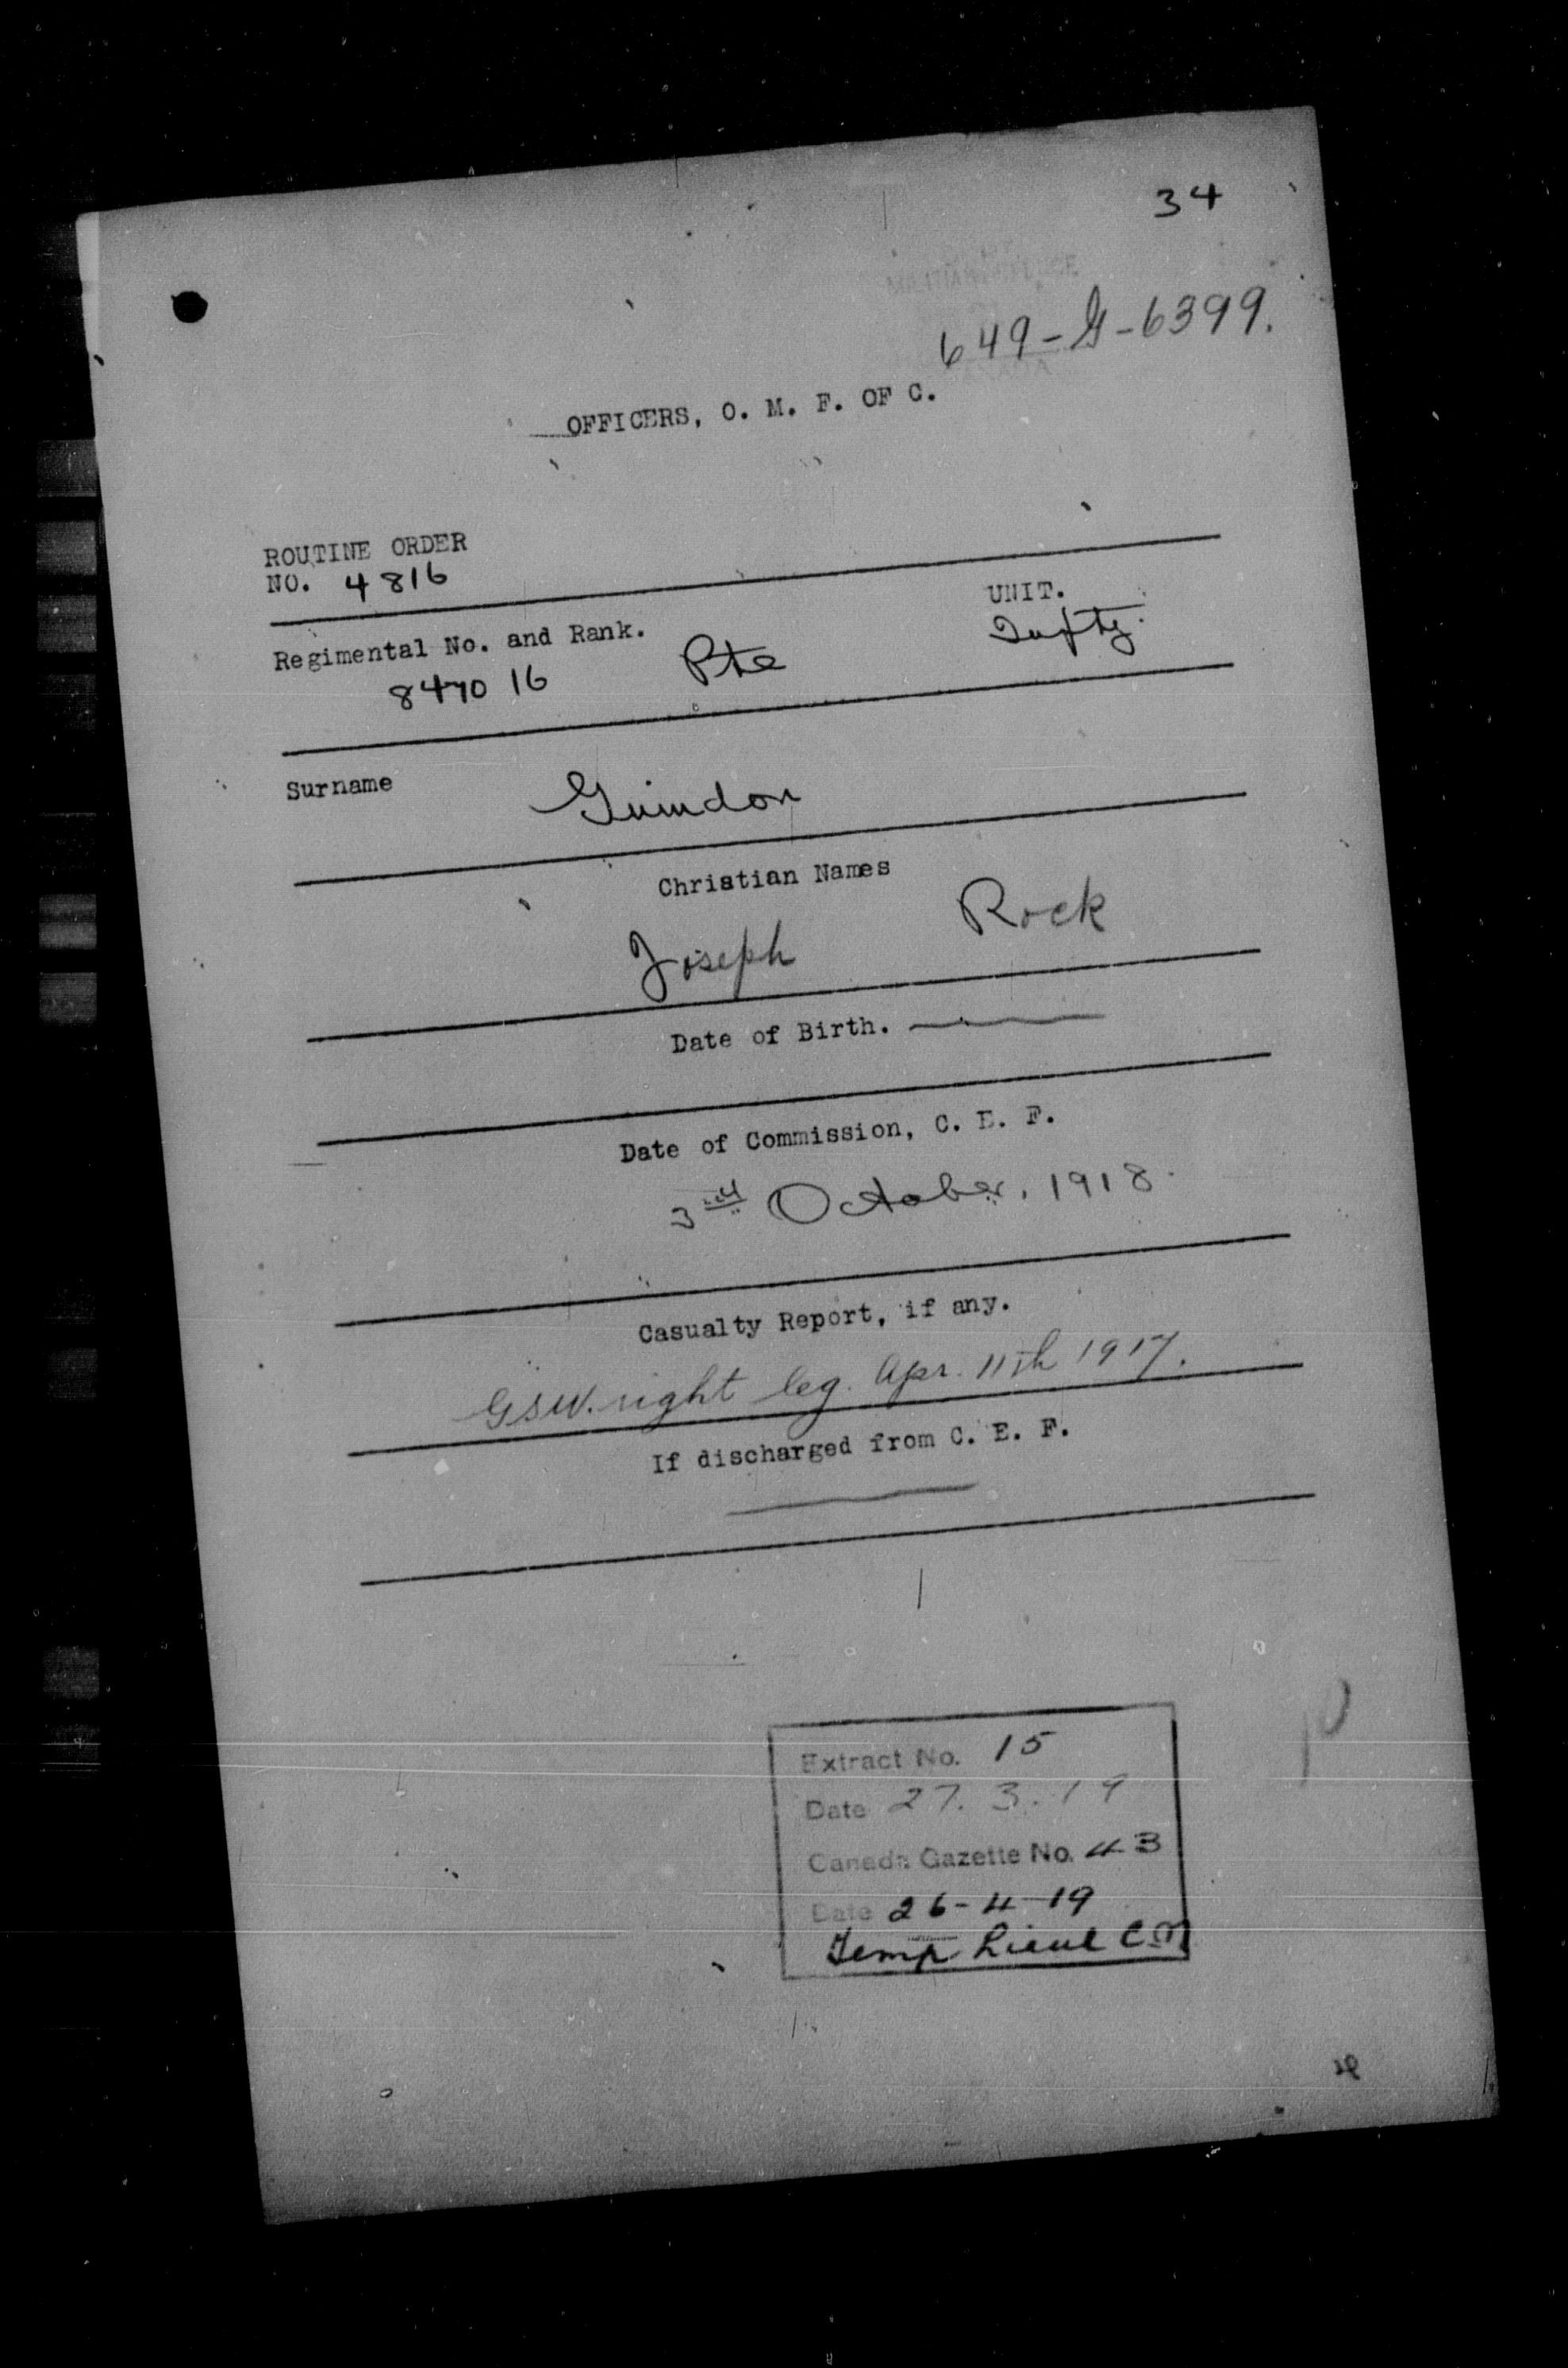 34
649-G-6399.
OFFICERS, O. M. F. OF C.
ROUTINE ORDER
NO. 4816
Regimental No. and Rank.
UNIT.
847016 Pte Infty.
Surname Guindon
Christian Names
Joseph Rock
Date of Birth. —
Date of Commission, C. E. F.
3rd October, 1918.
Casualty Report, if any.
GSW. right leg. Apr. 11th 1917.
If discharged from C. E. F.
—
Extract No. 15
Date 27. 3. 19
Canada Gazette No. 43
Date 26-4-19
Temp Lieut